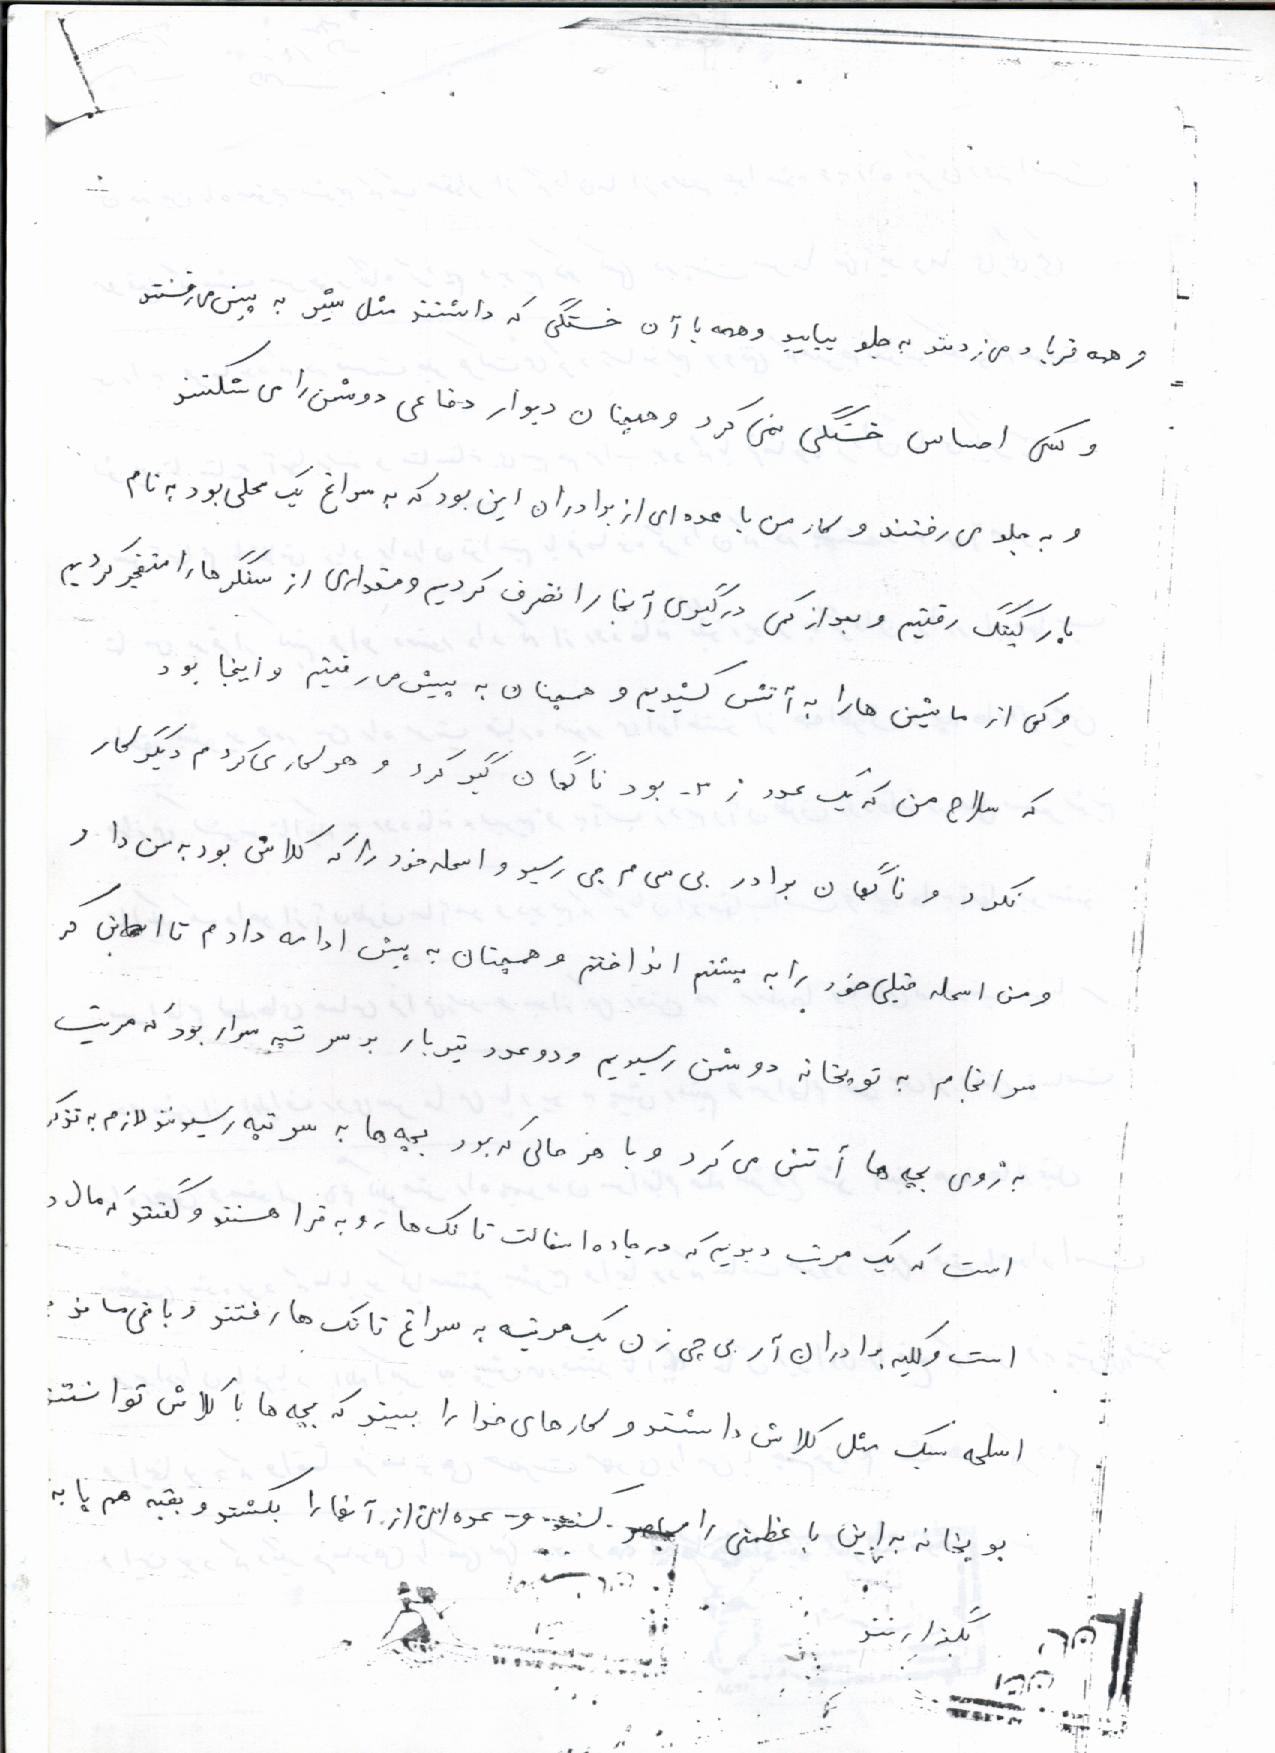 و همه فریاد می زدند به جلو بیایید و همه با آن خستگی که داشتند مثل شیر به پیش می رفتند
و کسی احساس خستگی نمی کرد و همچنان دیوار دفاعی دوشمن را می شکنند
و به جلو می رفتند و کار من با عده ای از برادران این بود که به سراغ یک محلی بود به نام
پارکینگ رفتیم و بعد از کمی درگیری آنجا را تصرف کردیم و مقداری از سنگرها را منفجر کردیم
و کمی از ماشین ها را به آتش کشیدیم و همچنان به پیش می رفتیم و اینجا بود
که سلاح من که یک عدد ژ ۳- بود ناگهان گیر کرد و هر کاری کردم دیگر کار
نکرد و ناگهان برادر بی سی م چی رسید و اسحله خود را که کلاش بود به من داد
و من اسحله قبلی خود را به پشتم انداختم و همچنان به پیش ادامه دادم تا
سرانجام به توپخانه دوشمن رسیدیم و دو عدد تیربار بر سر تپه سوار بود که مرتب
به روی بچه ها آتش می کرد و با هر حالی که بود بچه ها به سر تپه رسیدند لازم به تذکر
است که یک مرتب دیدیم که در جاده اسفالت تانک ها رو به فرا هستند و گفتند که مال
است و کلیه برادران آر بی جی زن یک مرتبه به سراغ تانک ها رفتند و باقی مانده
اسلحه سبک مثل کلاش داشتند و کارهای خدا را ببیند که بچه ها با کلاش توانستند
بوپخانه به این با عظمتی را کنند و عده ای از آنها را بکشند و بقیه هم پا به
بگذارند